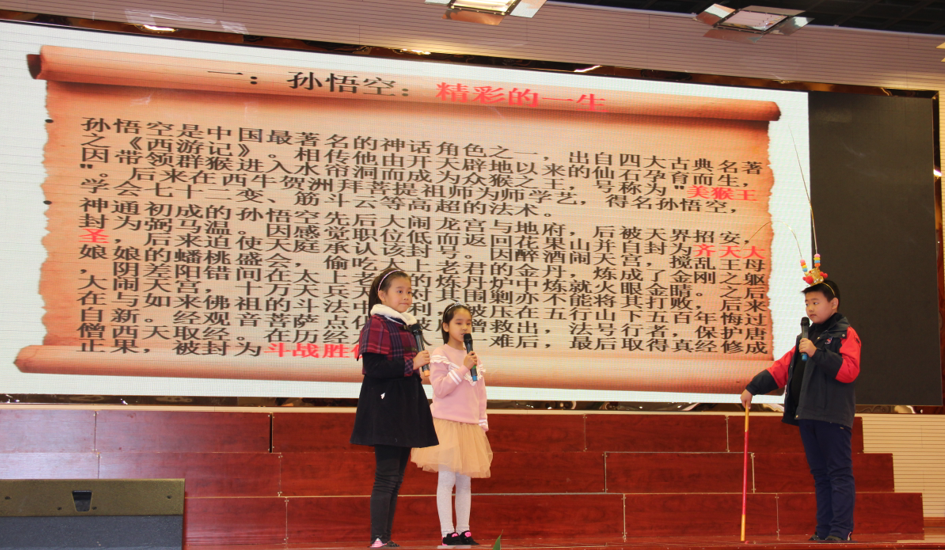 一：孙悟空：精彩的一生
孙悟空是中国最著名的神话角色之一，出自四大古典名著
之《西游记》。相传他由开天辟地以来的仙石孕育而生，
因带领群猴进入水帘洞而成为众猴之王，号称为"美猴王
"。后来在西牛贺洲拜菩提祖师为师学艺，得名孙悟空，
学会七十二变、筋斗云等高超的法术。
神通初成的孙悟空先后大闹龙宫与地府，后被天界招安，
封为弼马温。因感觉职位低而返回花果山并自封为齐天大
圣，后来迫使天庭承认该封号。因醉酒闹天宫，搅乱王母
娘娘的蟠桃盛会，偷吃太上老君的金丹，炼成了金刚之躯
，阴差阳错间在太上老君的炼丹炉中炼就火眼金睛。之后
大闹天宫，十万天兵天 对其围剿亦不能将其打败。后来
在与如来佛祖的斗法 利，被压在五行山下五百年悔过
自新。经观音菩萨点 被 僧救出，法号行者，保护唐
僧西天取经。在历经 一难后，最后取得真经修成
正果，被封为斗战胜